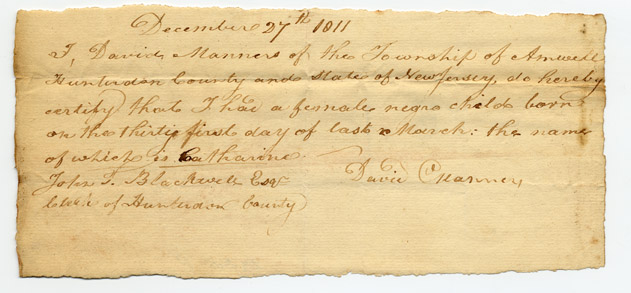 December 27th 1811
I, David Manners of the Township of Amwell
Hunterdon County and State of New Jersey, do hereby
certify that I had a female negro child born
on the thirty first day of last March: the name
of which is Catharine.
John T. Blackwell Esqr David Manners
Clerk of Hunterdon County